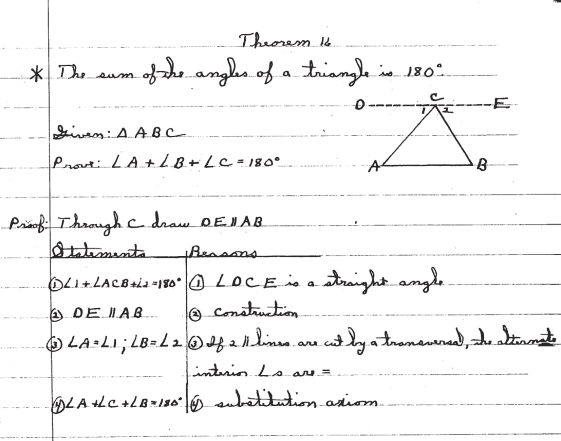 Theorem 16
* The sum of the angles of a triangle is 180°.
D C E
1 2
Given: Δ ABC
Prove: ∠A + ∠B + ∠C = 180°
A B
Proof: Through C draw DE ∥ AB
Statements Reasons
① ∠1 + ∠ACB + ∠2 = 180° ① ∠DCE is a straight angle
② DE ∥ AB ② construction
③ ∠A = ∠1 ; ∠B = ∠2 ③ If 2 ∥ lines are cut by a transversal, the alternate
interior ∠s are =
④ ∠A + ∠C + ∠B = 180° ④ substitution axiom